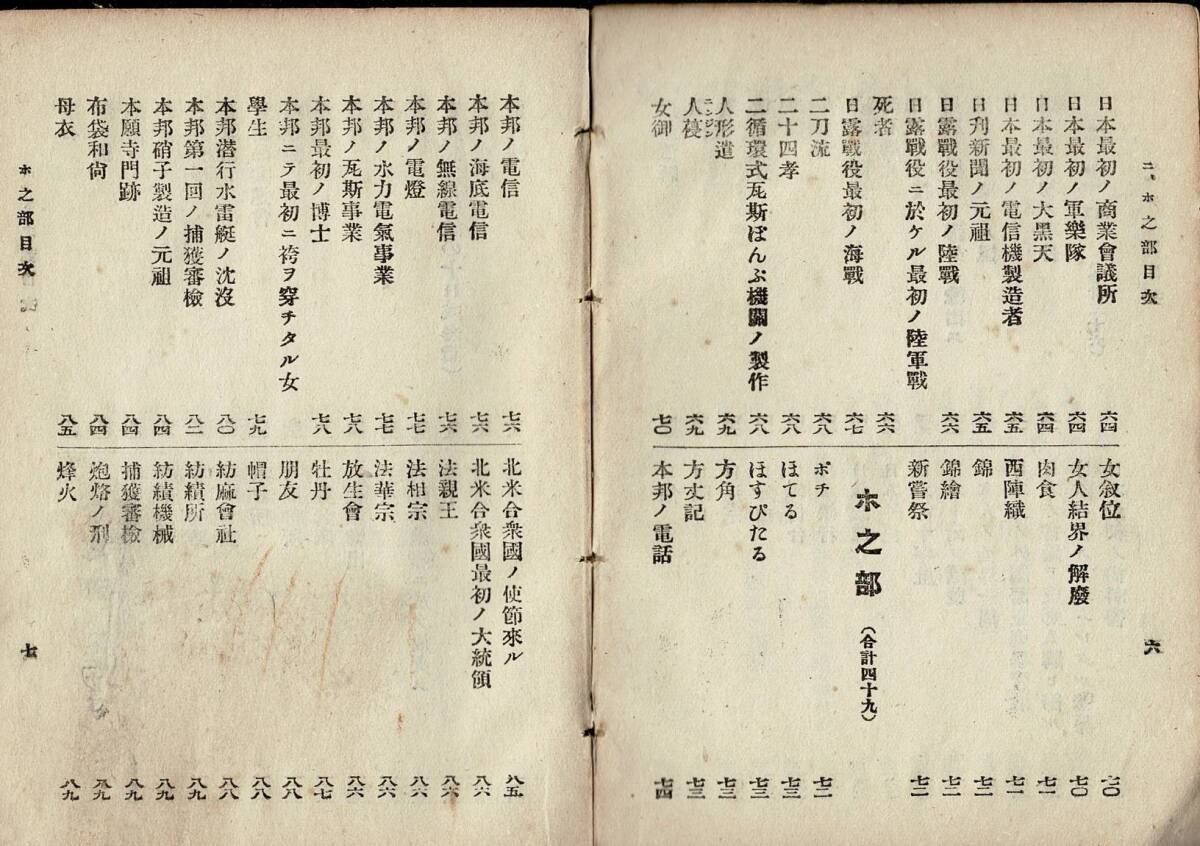 ニ、ホ之部目次
日本最初ノ商業會議所 六四
日本最初ノ軍樂隊 六四
日本最初ノ大黑天 六四
日本最初ノ電信機製造者 六五
日刋新聞ノ元祖 六五
日露戰役最初ノ陸戰 六六
日露戰役ニ於ケル最初ノ陸軍戰
死者 六六
日露戰役最初ノ海戰 六七
二刀流 六八
二十四孝 六八
二循環式瓦斯ぽんぷ機關ノ製作 六八
人形遣 六九
人葠 ニンジン 六九
女御 七〇
女敘位 七〇
女人結界ノ解廢 七〇
肉食 七一
西陣織 七一
錦 七二
錦繪 七二
新嘗祭 七二
ホ之部 (合計四十九)
ボチ 七二
ほてる 七三
ほすぴたる 七三
方角 七三
方丈記 七三
本邦ノ電話 七四
六
本邦ノ電信 七六
本邦ノ海底電信 七六
本邦ノ無線電信 七六
本邦ノ電燈 七七
本邦ノ水力電氣事業 七七
本邦ノ瓦斯事業 七八
本邦最初ノ博士 七八
本邦ニテ最初ニ袴ヲ穿チタル女
學生 七九
本邦潜行水雷艇ノ沈沒 八〇
本邦第一回ノ捕獲審檢 八二
本邦硝子製造ノ元祖 八四
本願寺門跡 八四
布袋和尙 八四
母衣 八五
北米合衆國ノ使節來ル 八五
北米合衆國最初ノ大統領 八六
法親王 八六
法相宗 八六
法華宗 八六
放生會 八六
牡丹 八七
朋友 八八
帽子 八八
紡麻會社 八八
紡績所 八九
紡績機械 八九
捕獲審檢 八九
炮烙ノ刑 八九
烽火 八九
ホ之部目次
七